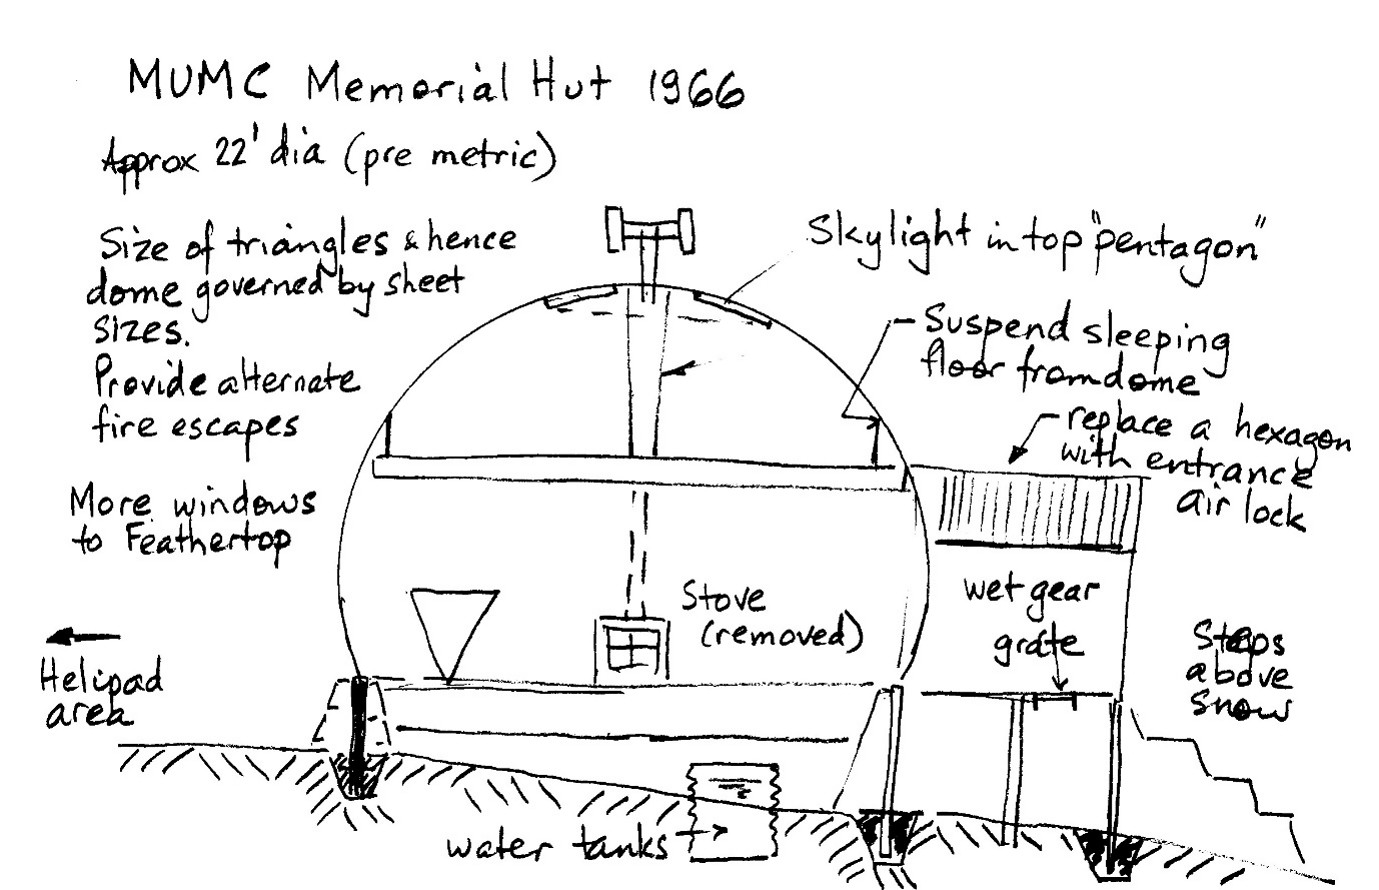 MUMC Memorial Hut 1966
Approx 22' dia (pre metric)
Size of triangles & hence
dome governed by sheet
sizes.
Provide alternate
fire escapes
More windows
to Feathertop
Helipad
area
Skylight in top "pentagon"
Suspend sleeping
floor from dome
replace a hexagon
with entrance
air lock
Stove
(removed)
wet gear
grate
Steps
above
snow
water tanks